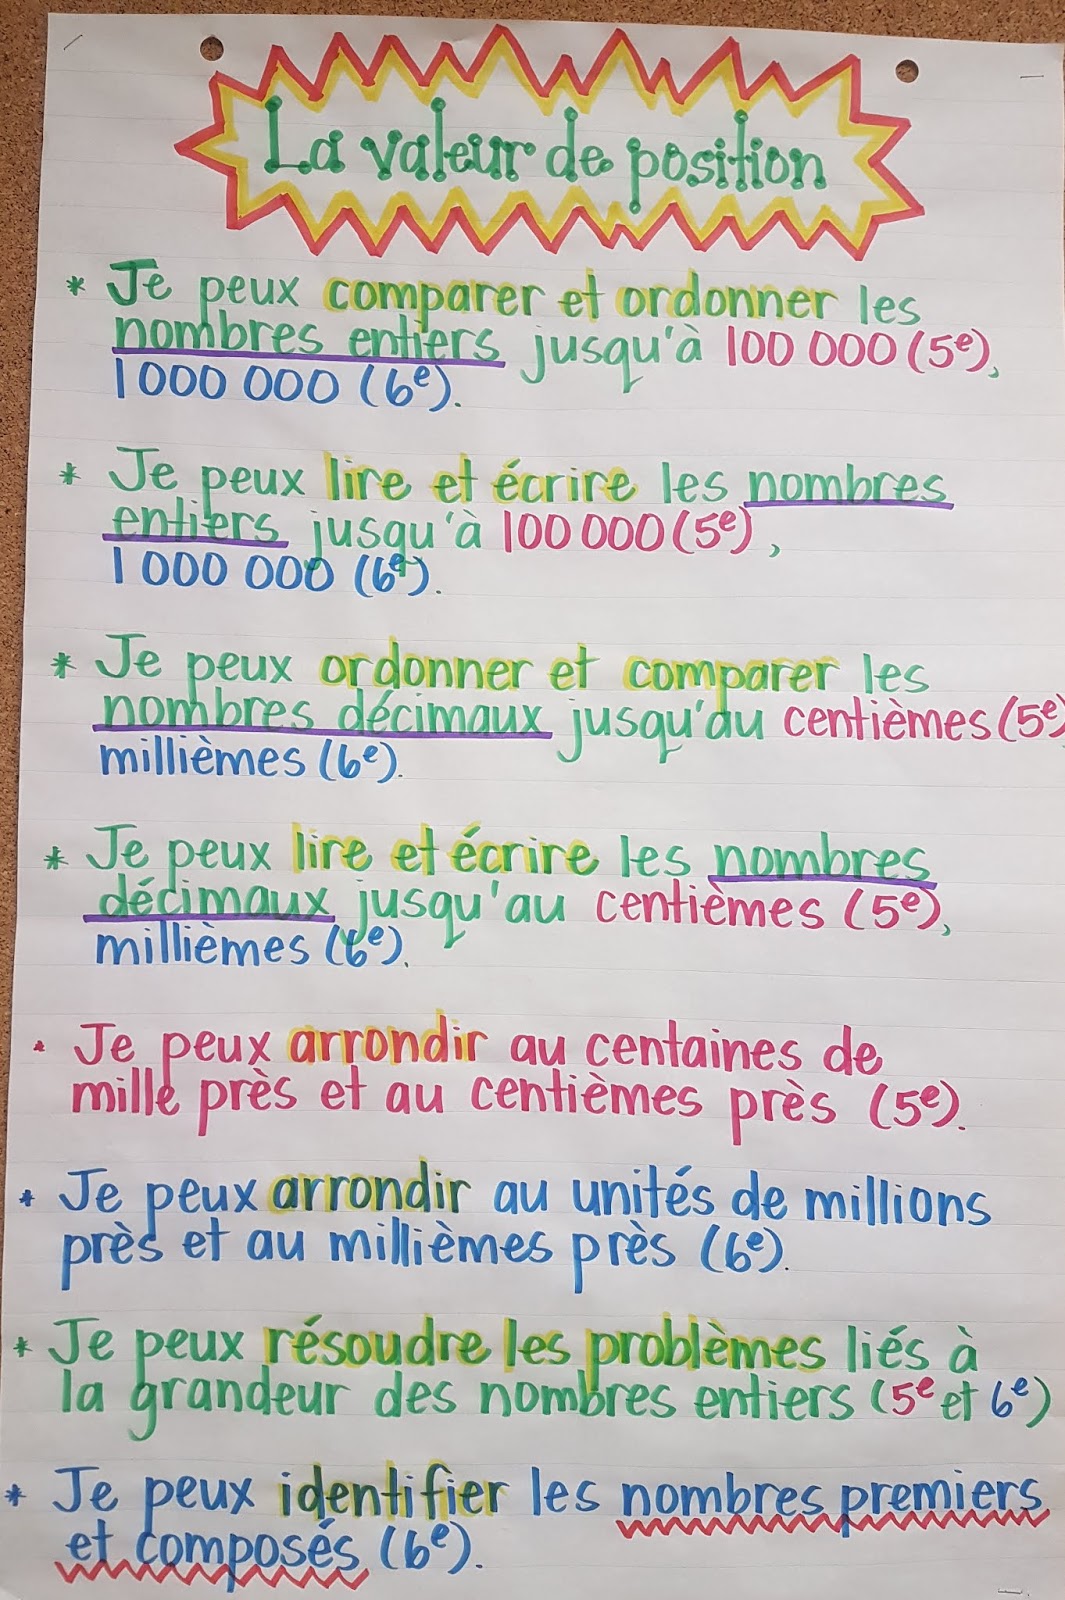 La valeur de position
* Je peux comparer et ordonner les
nombres entiers jusqu'à 100 000 (5e),
1 000 000 (6e).
* Je peux lire et écrire les nombres
entiers jusqu'à 100 000 (5e),
1 000 000 (6e).
* Je peux ordonner et comparer les
nombres décimaux jusqu'au centièmes (5e)
millièmes (6e).
* Je peux lire et écrire les nombres
décimaux jusqu'au centièmes (5e),
millièmes (6e).
* Je peux arrondir au centaines de
mille près et au centièmes près (5e).
* Je peux arrondir au unités de millions
près et au millièmes près (6e).
* Je peux résoudre les problèmes liés à
la grandeur des nombres entiers (5e et 6e)
* Je peux identifier les nombres premiers
et composés (6e).